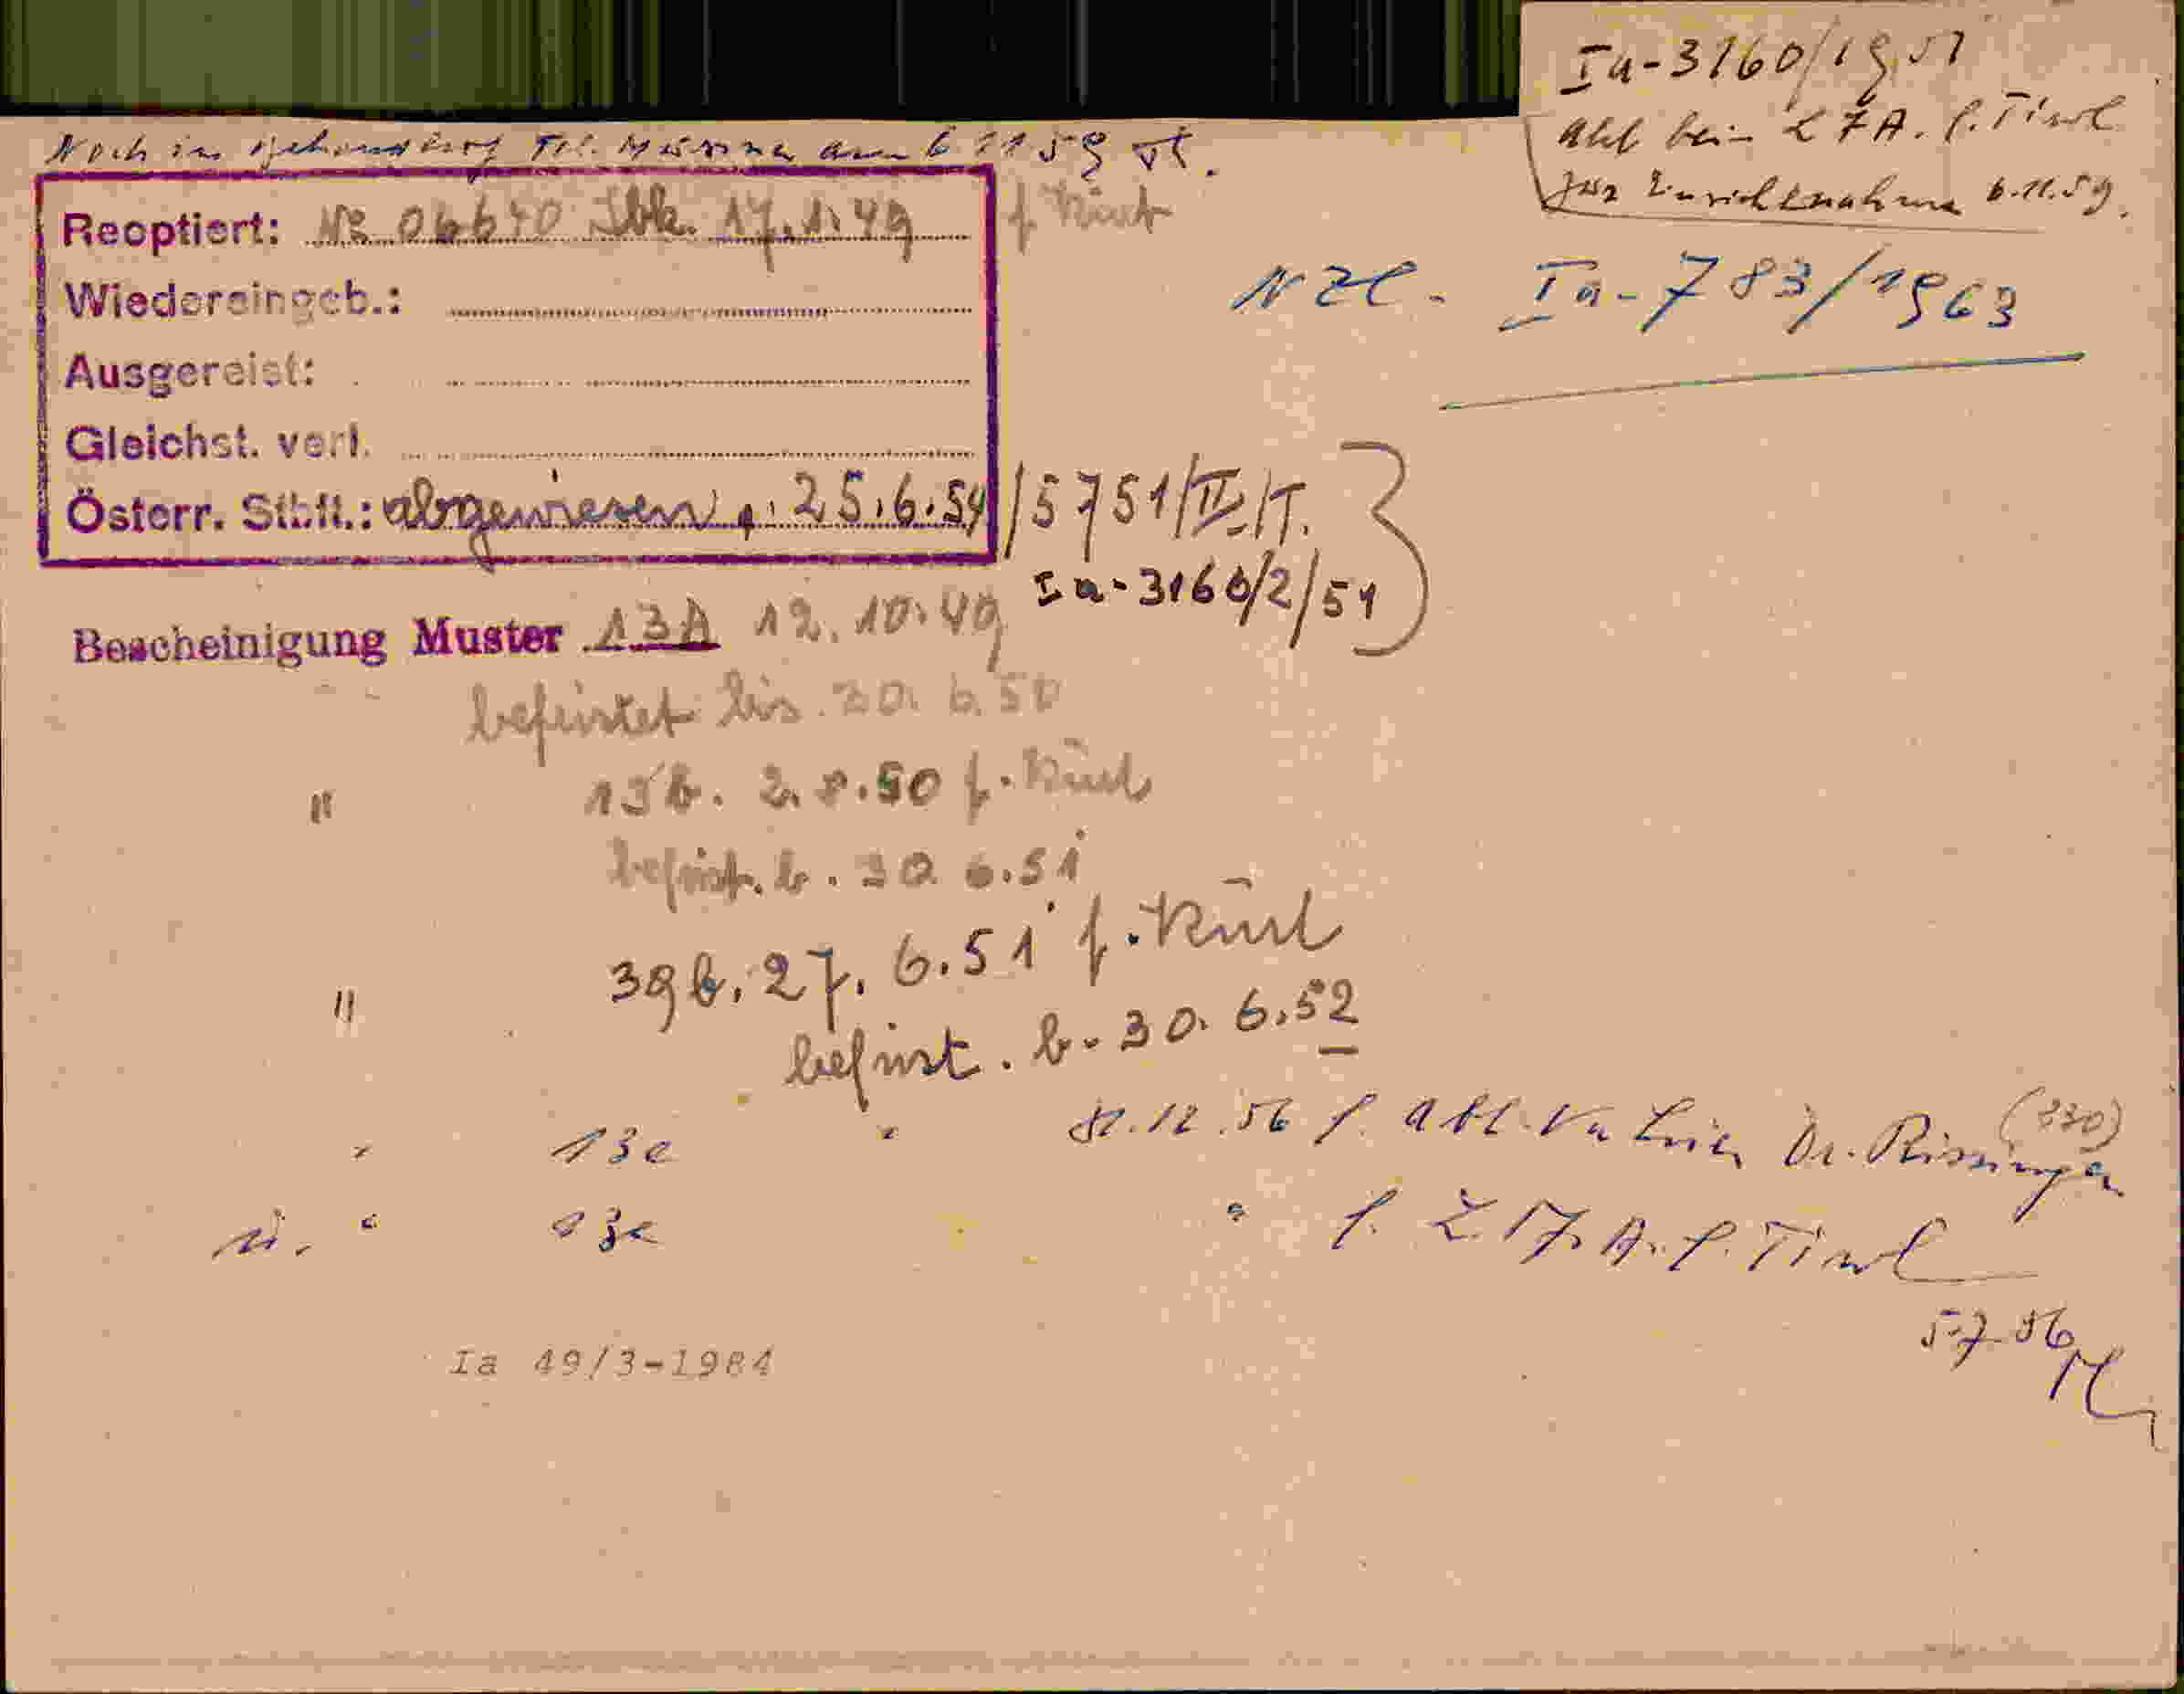 Ia-3160/1951
Akt bei L F A. f. Tirol
zur Einsichtnahme 6.11.59.
Noch in Behandlung am 6 11 59
Reoptiert: No 06640 Ibk. 17.1.49
Wiedereingeb.:
NZl. Ia-783/1963
Ausgereist:
Gleichst. verl.
Österr. Stbft.: abgewiesen 25.6.54/5751/II/T.
Ia-3160/2/51
Bescheinigung Muster 13A 12.10.49
befristet bis 30.6.50
" 13b. 2.8.50
befrist. b. 30 6.51
" 39b. 27.6.51
befrist. b. 30.6.52
" 13c " 31.12.56 f. Abt. Va Dr. (330)
u. " 13c " f. L. F. A. f. Tirol
5.7.56
Ia 49/3-1984